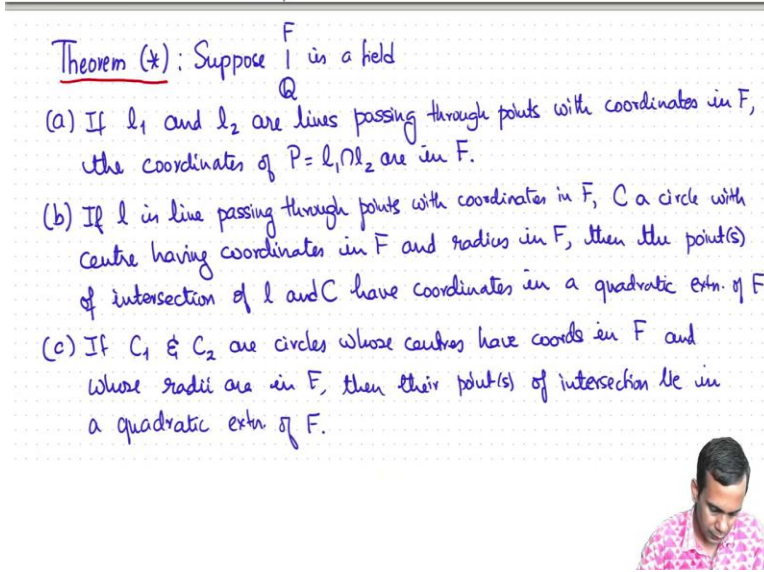 F
Theorem (*): Suppose | is a field
Q
(a) If l₁ and l₂ are lines passing through points with coordinates in F,
the coordinates of P = l₁∩l₂ are in F.
(b) If l is line passing through points with coordinates in F, C a circle with
centre having coordinates in F and radius in F, then the point(s)
of intersection of l and C have coordinates in a quadratic extn. of F
(c) If C₁ & C₂ are circles whose centres have coords in F and
whose radii are in F, then their point(s) of intersection lie in
a quadratic extn. of F.